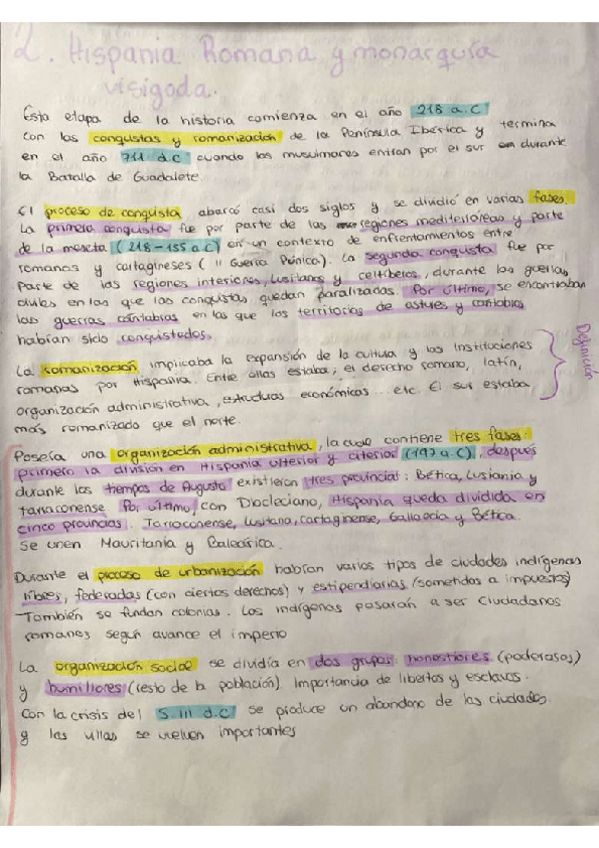 2. Hispania Romana y monarquía
visigoda.
Esta etapa de la historia comienza en el año 218 a.C
con las conquistas y romanización de la Península Ibérica y termina
en el año 711 d.C cuando los musulmanes entran por el sur durante
la Batalla de Guadalete
El proceso de conquista abarcó casi dos siglos y se dividió en varias fases.
La primera conquista fue por parte de las regiones mediterráneas y parte
de la meseta (218-155 a.C) en un contexto de enfrentamientos entre
romanos y cartagineses (II Guerra Púnica). La segunda conquista fue por
parte de las regiones interiores, lusitanos y celtíberos, durante las guerras
civiles en las que las conquistas quedan paralizadas. Por último, se encontraban
las guerras cántabras en las que los territorios de astures y cántabros
habían sido conquistados.
La romanización implicaba la expansión de la cultura y las instituciones
romanas por Hispania. Entre ellas estaba, el derecho romano, latín,
organización administrativa, estructuras económicas... etc. El sur estaba
más romanizado que el norte.
Definición
Poseía una organización administrativa, la cual contiene tres fases:
primero la división en Hispania ulterior y citerior (197 a.C), después
durante los tiempos de Augusto existieron tres provincias: Bética, Lusiania y
tarraconense. Por último, con Diocleciano, Hispania queda dividida en
cinco provincias: Tarraconense, Lusitana, cartaginense, Gallaecia y Bética.
Se unen Mauritania y Baleárica.
Durante el proceso de urbanización habían varios tipos de ciudades indígenas
libres, federadas (con ciertos derechos) y estipendiarias (sometidas a impuestos)
También se fundan colonias. Los indígenas pasarán a ser ciudadanos
romanos según avance el imperio
La organización social se dividía en dos grupos: honestiores (poderosos)
y humiliores (resto de la población). Importancia de libertos y esclavos.
Con la crisis del S.III d.C se produce un abandono de las ciudades.
y las villas se vuelven importantes